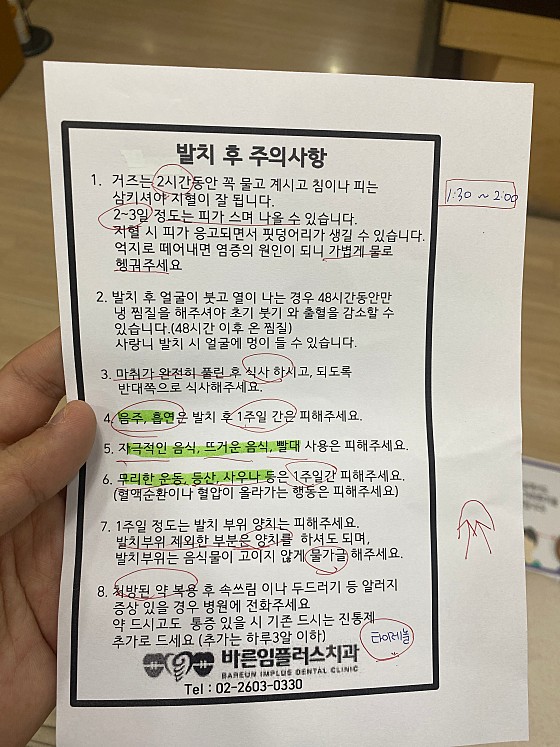 발치 후 주의사항
1. 거즈는 2시간동안 꼭 물고 계시고 침이나 피는
삼키셔야 지혈이 잘 됩니다.
1:30 ~ 2:00
2~3일 정도는 피가 스며 나올 수 있습니다.
지혈 시 피가 응고되면서 핏덩어리가 생길 수 있습니다.
억지로 떼어내면 염증의 원인이 되니 가볍게 물로
헹궈주세요
2. 발치 후 얼굴이 붓고 열이 나는 경우 48시간동안만
냉 찜질을 해주셔야 초기 붓기 와 출혈을 감소할 수
있습니다.(48시간 이후 온 찜질)
사랑니 발치 시 얼굴에 멍이 들 수 있습니다.
3. 마취가 완전히 풀린 후 식사 하시고, 되도록
반대쪽으로 식사해주세요.
4. 음주, 흡연은 발치 후 1주일 간은 피해주세요.
5. 자극적인 음식, 뜨거운 음식, 빨대 사용은 피해주세요.
6. 무리한 운동, 등산, 사우나 등은 1주일간 피해주세요.
(혈액순환이나 혈압이 올라가는 행동은 피해주세요)
7. 1주일 정도는 발치 부위 양치는 피해주세요.
발치부위 제외한 부분은 양치를 하셔도 되며,
발치부위는 음식물이 고이지 않게 물가글 해주세요.
8. 처방된 약 복용 후 속쓰림 이나 두드러기 등 알러지
증상 있을 경우 병원에 전화주세요
약 드시고도 통증 있을 시 기존 드시는 진통제
추가로 드세요 (추가는 하루3알 이하)
타이레놀
바른임플러스치과
BAREUN IMPLUS DENTAL CLINIC
Tel : 02-2603-0330